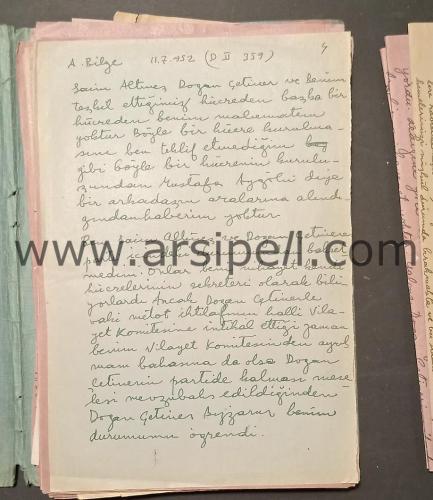 A. Bilge 11.7.952 (D II 359) 4
Saim Altınes Doğan Çetiner ve benim
teşkil ettiğimiz hücreden başka bir
hücreden benim malumatım
yoktur Böyle bir hücre kurulma
sını ben teklif etmediğim
gibi böyle bir hücrenin kurulu-
şundan Mustafa diye
bir arkadaşın aralarına alındı-
ğından haberim yoktur.
Ben Saim Altınes ve Doğan Çetinere
medim. Onlar beni nihayet kendi
hücrelerinin sekreteri olarak bili
yorlardı Ancak Doğan Çetinerle
vaki metot ihtilafının halli Vila-
yet Komitesine intikal ettiği zaman
benim Vilayet Komitesinden ayrıl
mam bahasına da olsa Doğan
Çetinerin partide kalması mese
lesi mevzubahs edildiğinden
Doğan Çetiner Bizzarur benim
durumumu öğrendi.
www.arsipell.com